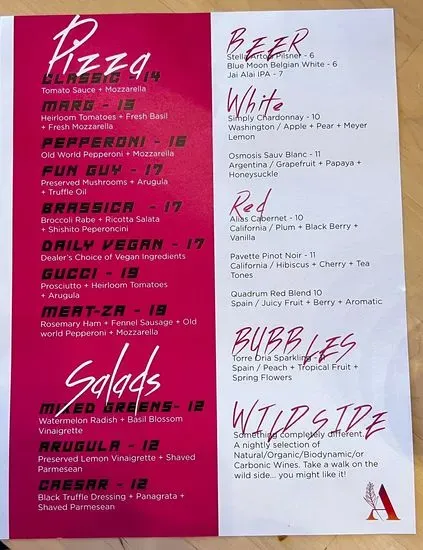 Pizza
CLASSIC - 14
Tomato Sauce + Mozzarella
MARG - 15
Heirloom Tomatoes + Fresh Basil
+ Fresh Mozzarella
PEPPERONI - 16
Old World Pepperoni + Mozzarella
FUN GUY - 17
Preserved Mushrooms + Arugula
+ Truffle Oil
BRASSICA - 17
Broccoli Rabe + Ricotta Salata
+ Shishito Peperoncini
DAILY VEGAN - 17
Dealer's Choice of Vegan Ingredients
GUCCI - 19
Prosciutto + Heirloom Tomatoes
+ Arugula
MEAT-ZA - 19
Rosemary Ham + Fennel Sausage + Old
world Pepperoni + Mozzarella
Salads
MIXED GREENS- 12
Watermelon Radish + Basil Blossom
Vinaigrette
ARUGULA - 12
Preserved Lemon Vinaigrette + Shaved
Parmesean
CAESAR - 12
Black Truffle Dressing + Panagrata +
Shaved Parmesean
BEER
Stella Artois Pilsner - 6
Blue Moon Belgian White - 6
Jai Alai IPA - 7
White
Simply Chardonnay - 10
Washington / Apple + Pear + Meyer
Lemon
Osmosis Sauv Blanc - 11
Argentina / Grapefruit + Papaya +
Honeysuckle
Red
Alias Cabernet - 10
California / Plum + Black Berry +
Vanilla
Pavette Pinot Noir - 11
California / Hibiscus + Cherry + Tea
Tones
Quadrum Red Blend 10
Spain / Juicy Fruit + Berry + Aromatic
BUBBLES
Torre Oria Sparkling -
Spain / Peach + Tropical Fruit +
Spring Flowers
WILD SIDE
Something completely different.
A nightly selection of
Natural/Organic/Biodynamic/or
Carbonic Wines. Take a walk on the
wild side... you might like it!
A